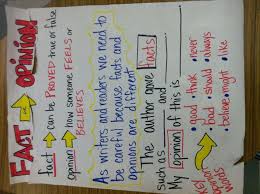 FACT → OPINION
fact → can be PROVED true or false
opinion → how someone FEELS or
BELIEVES
As writers and readers we need to
be careful because facts and
opinions are different
The author gave facts
such as and
My opinion of this is
opinion
words
• good • think • never
• bad • should • always
• believe • might • like